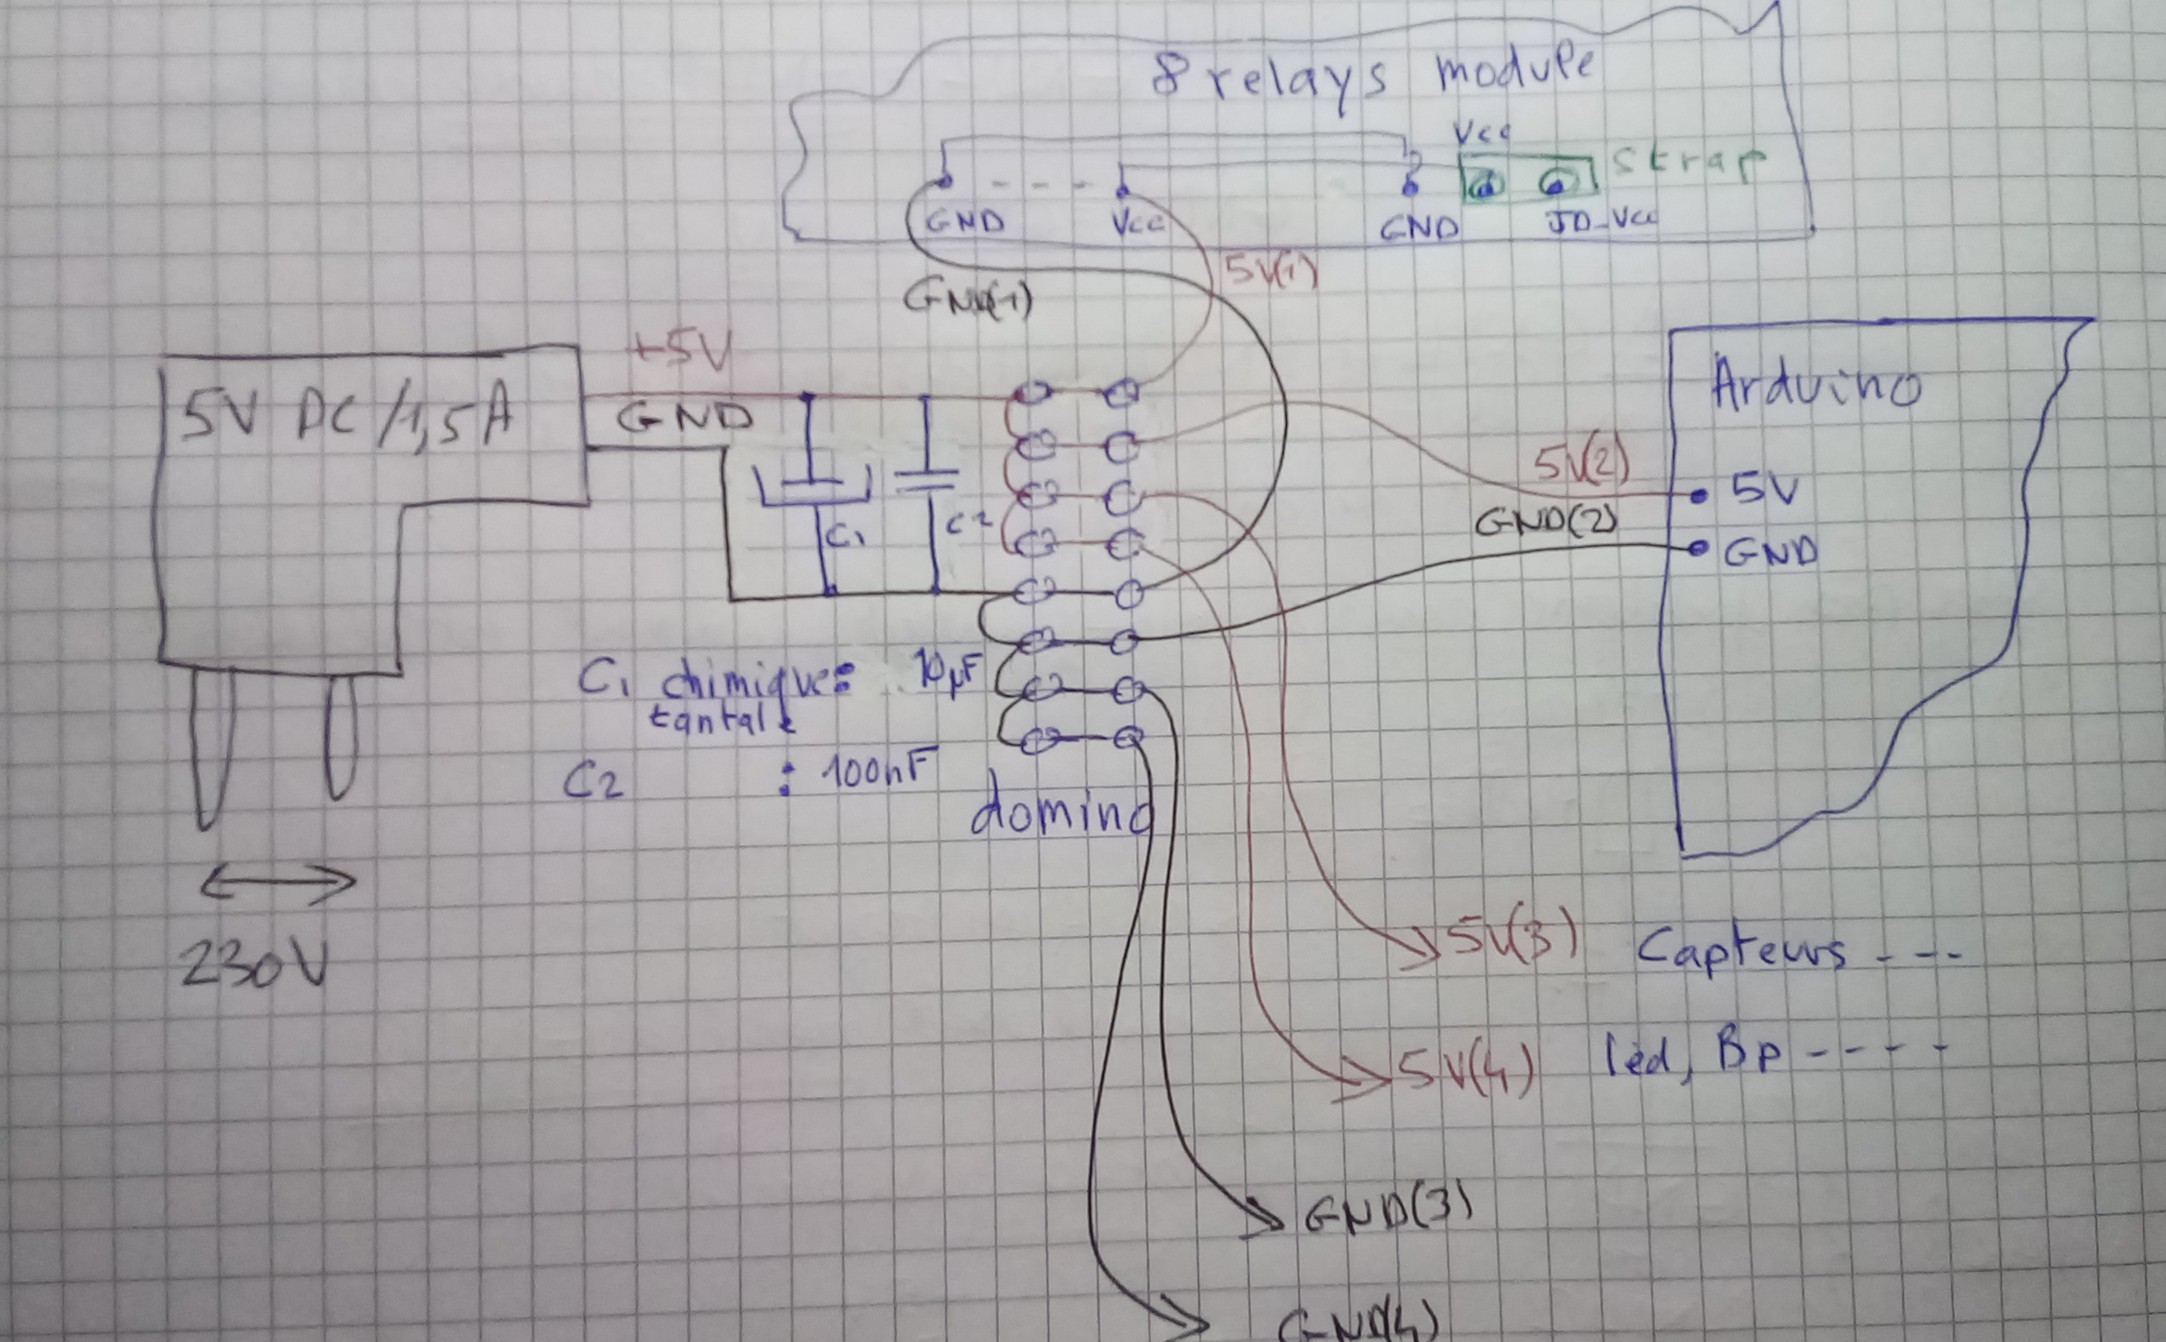 8 relays module
Vcc
Strap
GND
Vcc
GND
JD-Vcc
5V(1)
GND(1)
+5V
5V DC/1,5A
GND
Arduino
5V(2)
5V
GND(2)
GND
C1
C2
C1 chimique: 10µF
tantale
C2 : 100nF
domino
230V
5V(3) Capteurs ---
5V(4) led, Bp ----
GND(3)
GND(4)